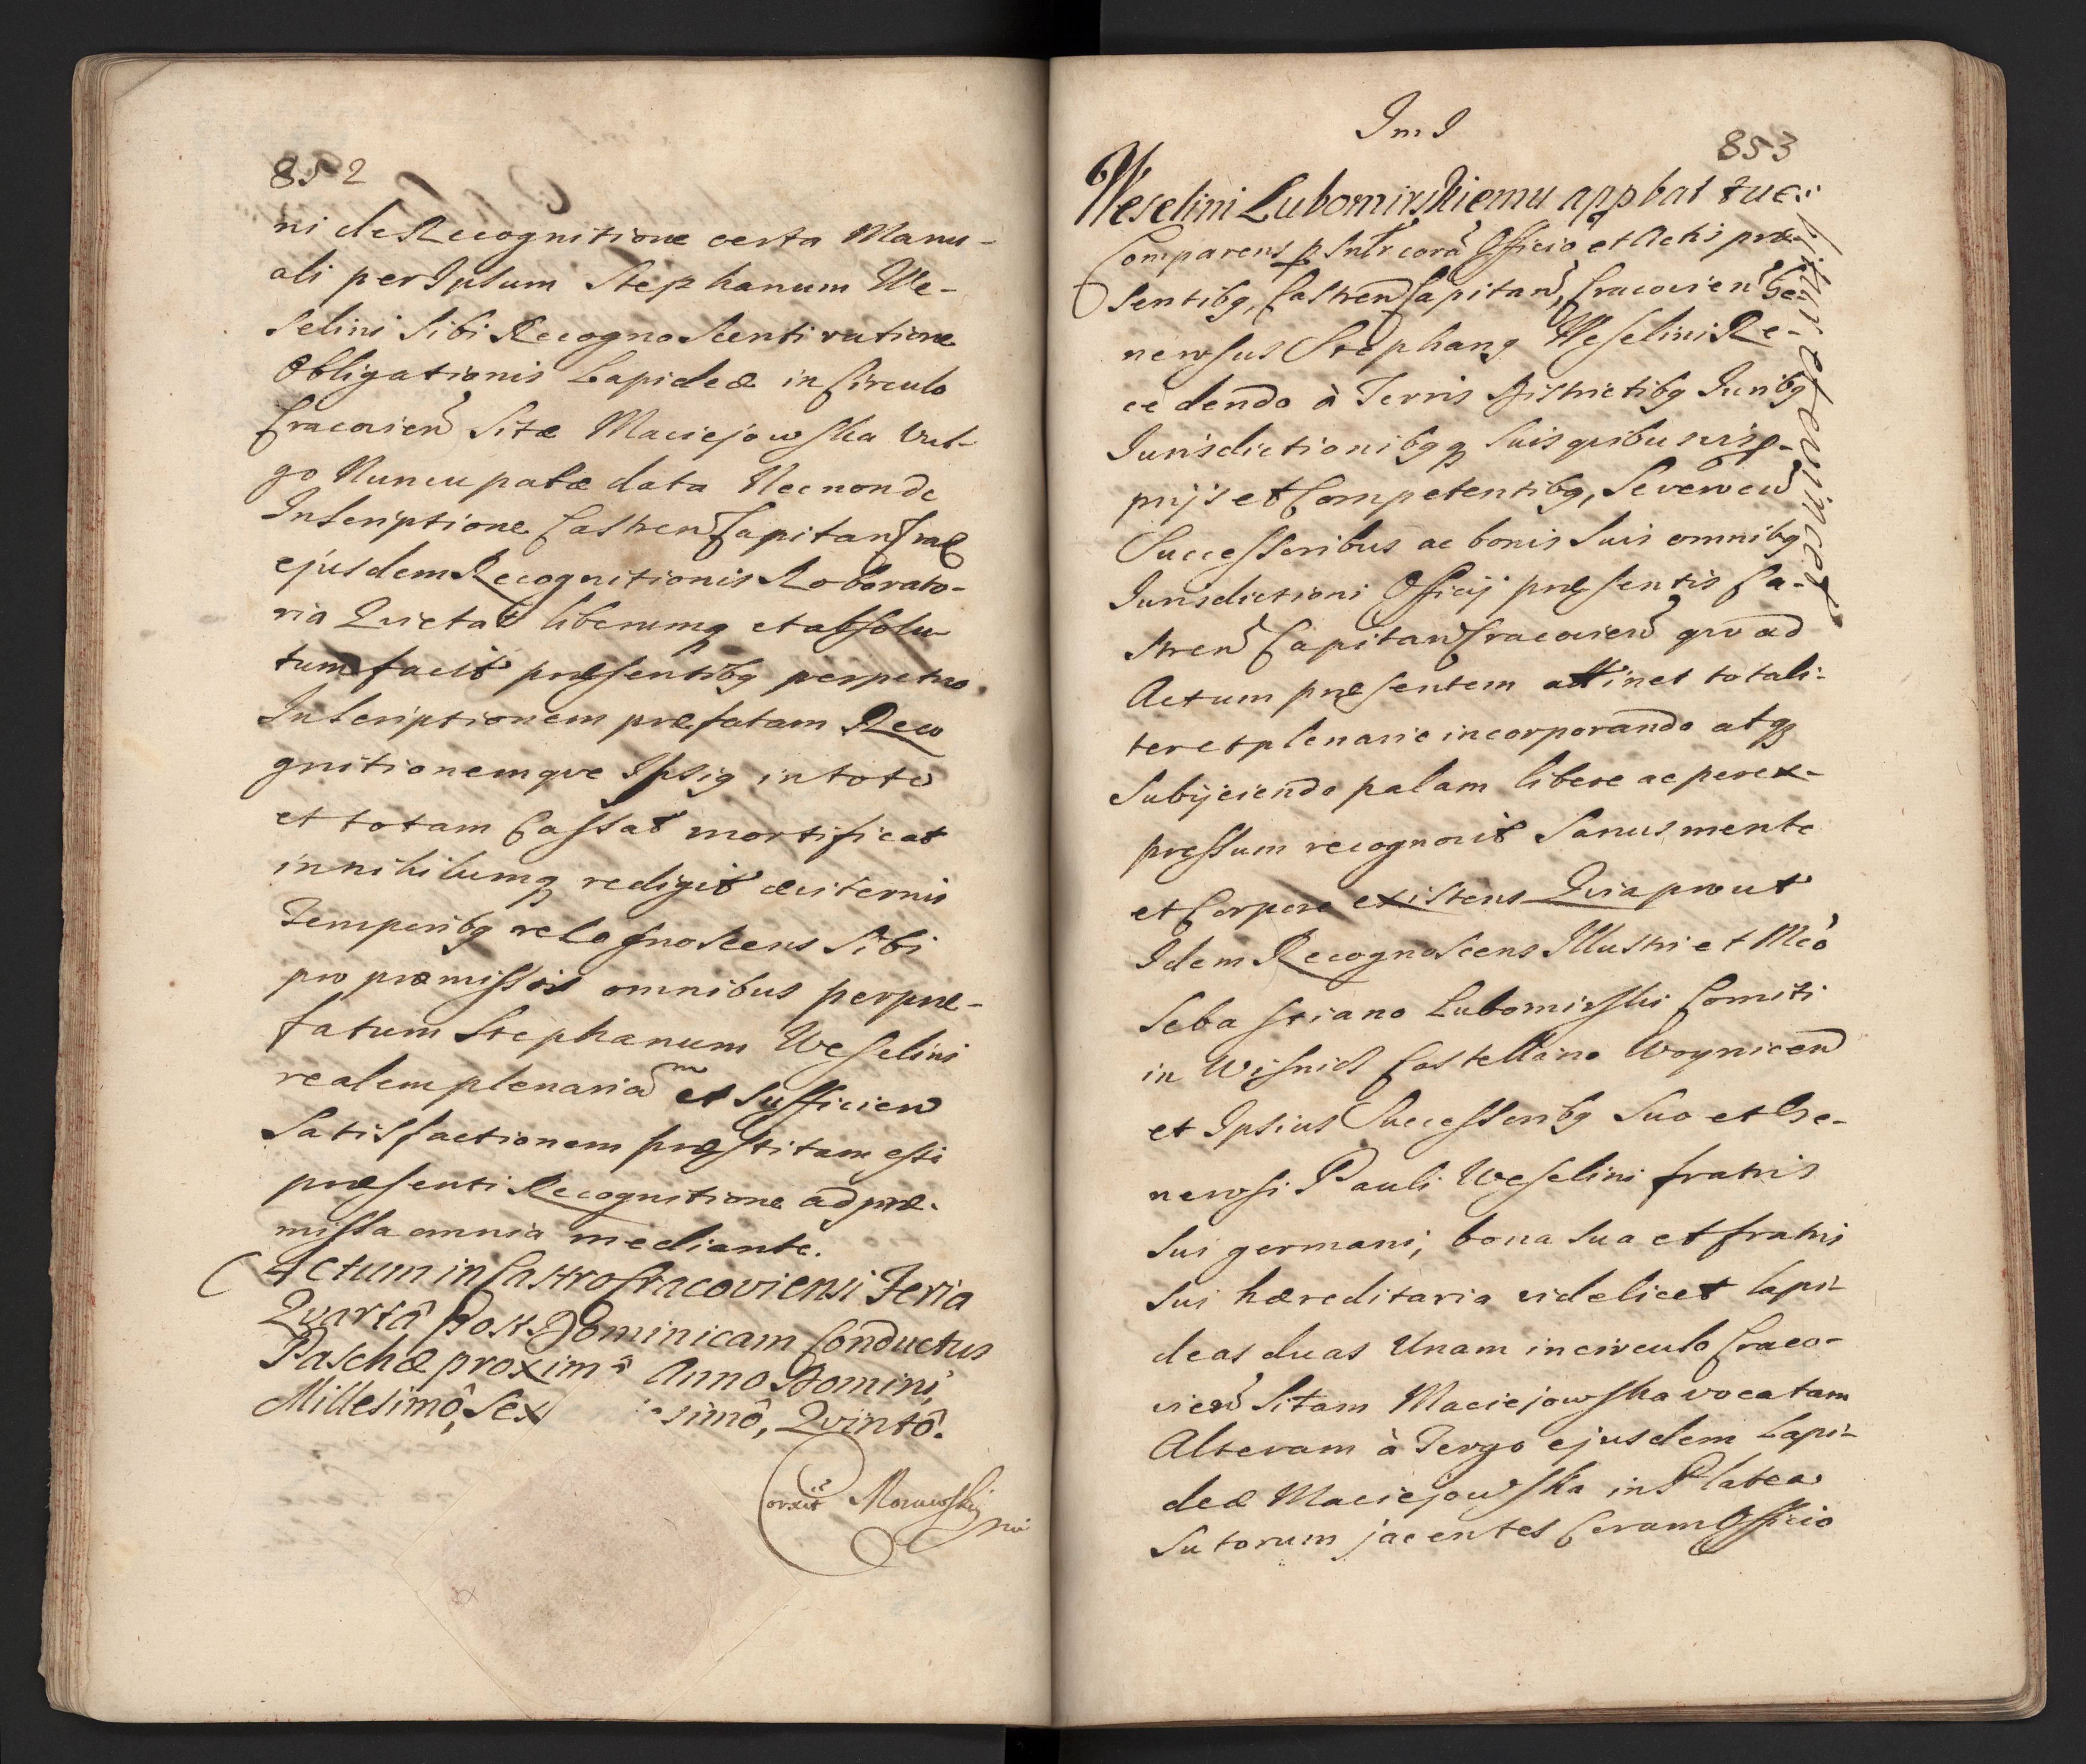 852
ni de Recognitione certa Manu-
ali per Ipsum Stephanum We-
selini sibi Recognoscenti ratione
Obligationis Lapideæ in Circulo
Cracovien Sitæ Maciejowska vul-
go Nuncupatæ data Necnon de
Inscriptione Castren Capitan Crac
ejusdem Recognitionis Roborato-
ria Qvietat liberumq et absolu-
tum facit præsentibq perpetuo.
Inscriptionem præfatam Reco
gnitionemqve Ipsiq in toto
et totam Cassat mortificat
in nihilumq redigit æviternis
Temporibq recognoscens Sibi
pro præmissis omnibus per præ-
fatum Stephanum Weselini
realem plenariam et sufficien
Satisfactionem præstitam esse
præsenti Recognitione ad præ-
missa omnia mediante.
Actum in Castro Cracoviensi Feria
Qvartâ Post Dominicam Conductus
Paschæ proximâ Anno Domini,
Millesimô, Sex simô, Qvintô.
853
Weselini Lubomirskiemu appbat tue-
bitur et evincet
Comparens psntr corã Officio et Actis præ-
sentibq, Castren Capitan, Cracovien Ge-
nerosus Stephanq Weselini Re-
cedendo à Terris Districtibq Juribq
Jurisdictionibqq suis qvibusvis p-
prijs et Competentibq, Se vero cũ
Successoribus ac bonis suis omnibq
Jurisdictioni Officij præsentis Ca-
stren Capitan Cracovien qvo ad
Actum præsentem attinet totali-
ter et plenarie incorporando atq
Subijciendo palam libere ac per ex-
pressum recognovit Sanus mente
et Corpore existens Qvia prout
Idem Recognoscens Illustri et Mco
Sebastiano Lubomirski Comiti
in Wisnicz Castellano Woynicen
et Ipsius Successoribq Suo et Ge-
nerosi Pauli Weselini fratris
sui germani, bona sua et fratris
sui hæreditaria videlicet lapi-
deas duas Unam in circulo Craco-
vien Sitam Maciejowska vocatam
Alteram à Tergo ejusdem Lapi-
deæ Maciejowska in Platea
Sutorum jacentes Coram Officio